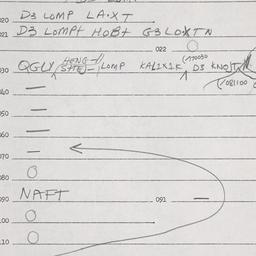 020 D3 LOMP LA·XT
021 D3 LOMPT HOBT G3LOXTN
022 O
030 QGLY LOMP KAL1X1K D3 KNOIT
(770030
(/081100
040 —
050 —
060 —
070 —
080 O
090 NAFT 091 —
100 O
110 O